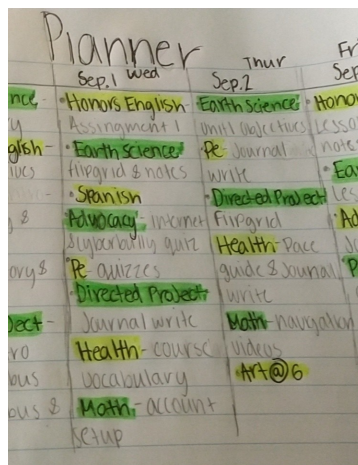 Planner
Sep.1 Wed
Honors English-
Assingment 1
Earth Science-
flipgrid & notes
Spanish
Advocacy- Internet
& Cyberbully quiz
Pe- quizzes
Directed Project-
Journal write
Health- course
vocabulary
Math- account
setup
Thur
Sep.2
Earth Science-
unit 1 objectives
Pe- Journal
write
Directed Project-
Flipgrid
Health- Pace
guide & Journal
write
Math- navigation
videos
Art@6
Fri
Sep
Honor
Lesso
note
Ear
Les
Ad
P
nce-
y
glish-
& 
ory &
ject-
ro
bus
bus &